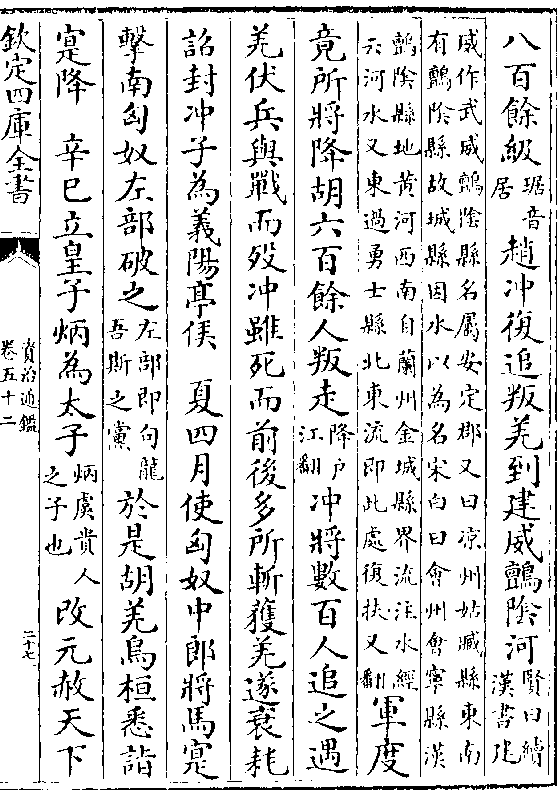 八百餘級琚音居趙冲復追叛羌到建威鸇陰河賢曰續漢書建
威作武威鸇陰縣名屬安定郡又曰凉州姑臧縣東南
有鸇陰縣故城縣因水以為名宋白曰會州會寧縣漢
鸇陰縣地黃河西南自蘭州金城縣界流注水經
云河水又東過勇士縣北東流即此處復扶又翻軍度
竟所將降胡六百餘人叛走降户江翻冲將數百人追之遇
羌伏兵與戰而殁冲雖死而前後多所斬獲羌遂衰耗
詔封冲子為義陽亭侯 夏四月使匈奴中郎將馬寔
擊南匈奴左部破之左部即句龍吾斯之黨於是胡羌烏桓悉詣
寔降 辛巳立皇子炳為太子炳虞貴人之子也改元赦天下
欽定四庫全書
資治通鑑
卷五十二
二十七